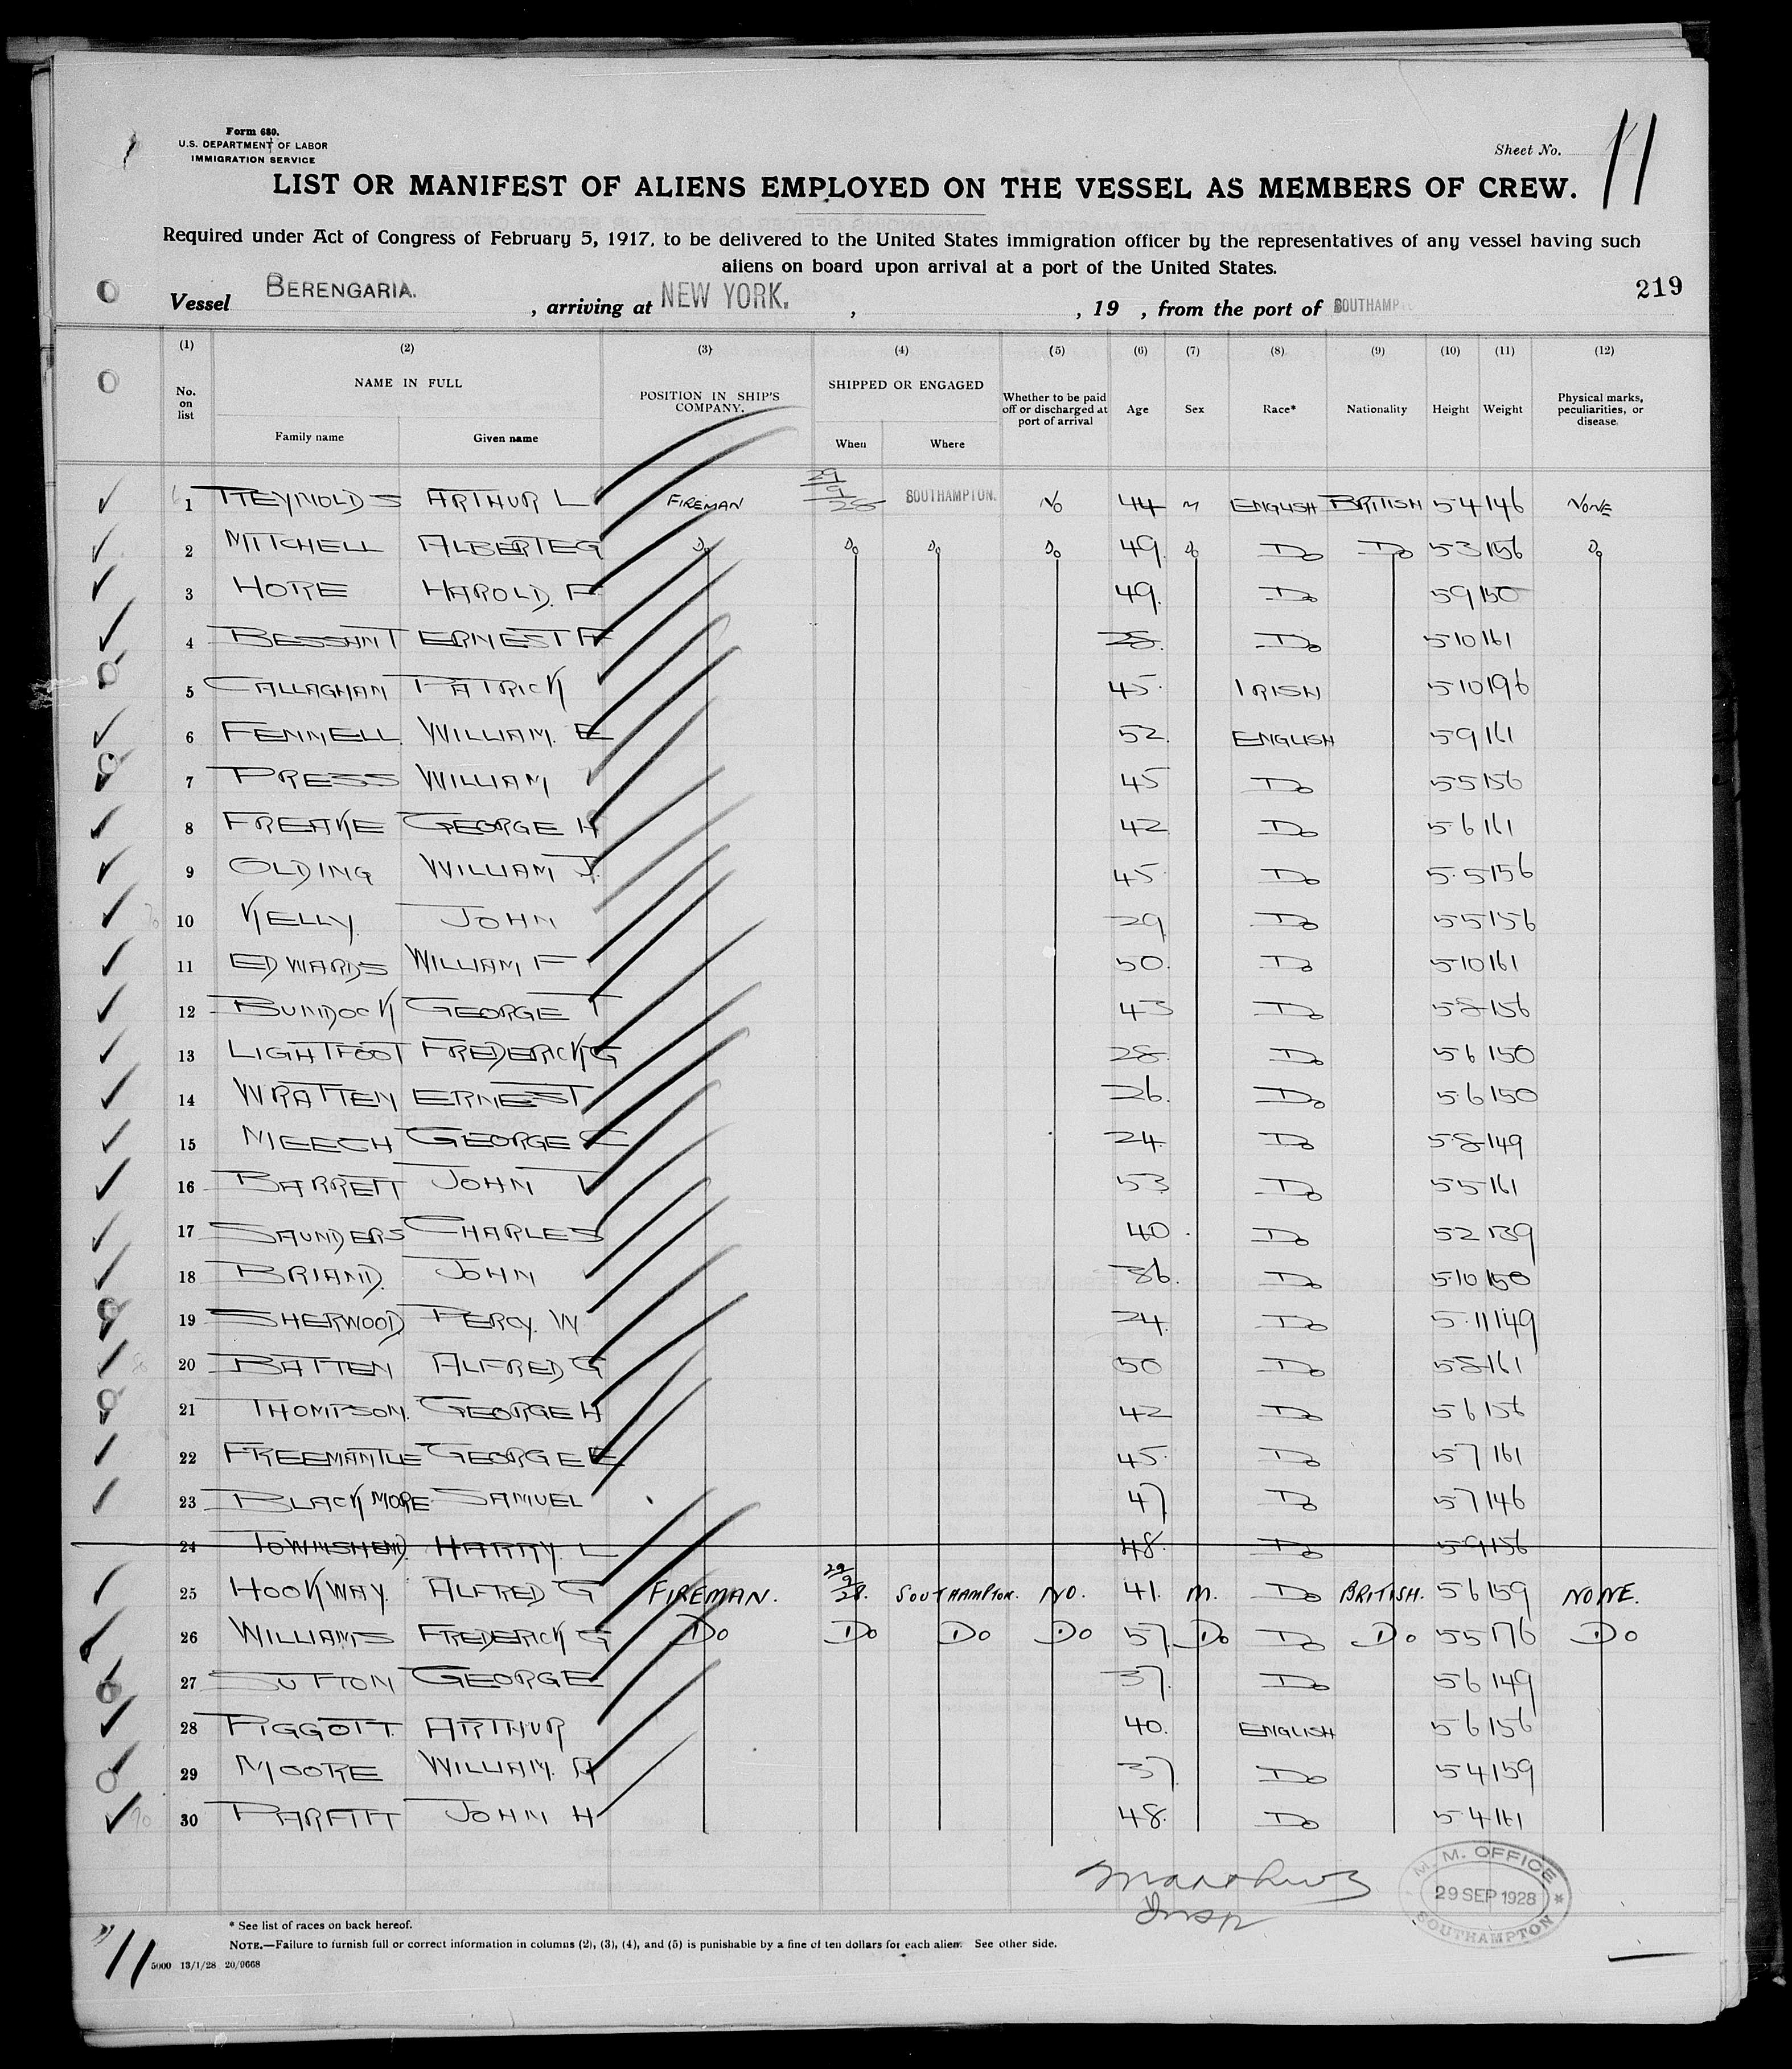 Form 680.
U.S. DEPARTMENT OF LABOR
IMMIGRATION SERVICE
Sheet No. 11
LIST OR MANIFEST OF ALIENS EMPLOYED ON THE VESSEL AS MEMBERS OF CREW.
Required under Act of Congress of February 5, 1917, to be delivered to the United States immigration officer by the representatives of any vessel having such
aliens on board upon arrival at a port of the United States.
219
Vessel BERENGARIA. , arriving at NEW YORK. , , 19 , from the port of SOUTHAMPT
(1) (2) (3) (4) (5) (6) (7) (8) (9) (10) (11) (12)
No. on list NAME IN FULL Family name Given name POSITION IN SHIP'S COMPANY. SHIPPED OR ENGAGED When Where Whether to be paid off or discharged at port of arrival Age Sex Race* Nationality Height Weight Physical marks, peculiarities, or disease.
1 REYNOLDS ARTHUR L FIREMAN 29/9/28 SOUTHAMPTON. NO 44 M ENGLISH BRITISH 5 4 146 NONE
2 MITCHELL ALBERT EG Do Do Do Do 49. Do Do Do 5 3 156 Do
3 HORE HAROLD. F 49. Do 5 9 150
4 BESSANT ERNEST A 28. Do 5 10 161
5 CALLAGHAN PATRICK 45. IRISH 5 10 196
6 FENNELL. WILLIAM. E 52. ENGLISH 5 9 161
7 PRESS WILLIAM 45 Do 5 5 156
8 FREAKE GEORGE H 42 Do 5 6 161
9 OLDING WILLIAM J. 45 Do 5 5 156
10 KELLY. JOHN 29 Do 5 5 156
11 EDWARDS WILLIAM F 50. Do 5 10 161
12 BUNDOCK GEORGE T 43 Do 5 8 156
13 LIGHTFOOT FREDERICK G 28. Do 5 6 150
14 WRATTEN ERNEST 26. Do 5 6 150
15 MEECH GEORGE C 24. Do 5 8 149
16 BARRETT JOHN 53 Do 5 5 161
17 SAUNDERS CHARLES 40 Do 5 2 139
18 BRIAND. JOHN 36. Do 5 10 150
19 SHERWOOD PERCY. W 24. Do 5 11 149
20 BATTEN ALFRED G 50 Do 5 8 161
21 THOMPSON. GEORGE H 42 Do 5 6 156
22 FREEMANTLE GEORGE E 45. Do 5 7 161
23 BLACKMORE SAMUEL 47 Do 5 7 146
24 TOWNSHEND. HARRY. L 48. Do 5 9 156
25 HOOKWAY. ALFRED G FIREMAN. 29/9/28. SOUTHAMPTON. NO. 41. M. Do BRITISH. 5 6 159 NONE.
26 WILLIAMS FREDERICK G Do Do Do Do 57. Do Do Do 5 5 176 Do
27 SUTTON GEORGE 37. Do 5 6 149
28 PIGGOTT. ARTHUR 40. ENGLISH 5 6 156
29 MOORE WILLIAM. A 37. Do 5 4 159
30 PARFITT JOHN H 48. Do 5 4 161
M. M. OFFICE
29 SEP 1928
SOUTHAMPTON
* See list of races on back hereof.
NOTE.—Failure to furnish full or correct information in columns (2), (3), (4), and (5) is punishable by a fine of ten dollars for each alien. See other side.
11
5000 13/1/28 20/9668